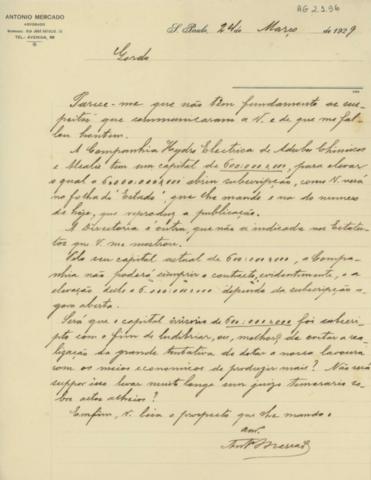 AG 2.3.96
ANTONIO MERCADO
ADVOGADO
TEL: AVENIDA, 98
S. Paulo, 24 de Março de 1929
Gordo
Parece-me que não têm fundamento as sus-
peitas que communicaram a V. e de que me fal-
lou hontem.
A Companhia Hydro Electrica de Adubos Chimicos
e Metaes tem um capital de 600:000$000, para elevar
o qual a 6.000:000$000 abriu subscripção, como V. verá
na folha d'"Estado", que lhe mando e no do numero
de hoje, que reproduz a publicação.
A Directoria é outra, que não a indicada nos Estatu-
tos que V. me mostrou.
Pelo seu capital actual de 600:000$000, a Compa-
nhia não poderá cumprir o contracto, evidentemente, e a
elevação deste a 6.000:000$000 depende da subscripção a-
gora aberta.
Será que o capital de 600:000$000 foi subscri-
pto com o fim de ludibriar, ou, melhor, de evitar a rea-
lização da grande tentativa de dotar a nossa lavoura
com os meios economicos de produzir mais? Não será
suppor isso levar muito longe um juizo temerario so-
bre actos alheios?
Emfim, V. leia o prospecto que lhe mando.
am.
Ant. Mercado